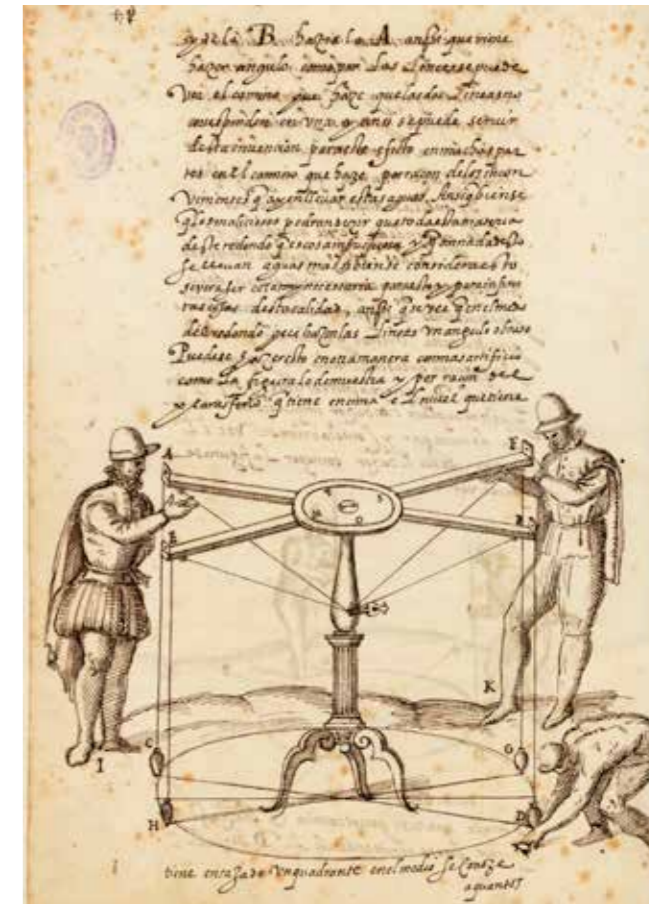 y de la B hazia la A ansi que viene
hazer angulo como por las lineas se puede
ver el camino que haze que las dos lineas no
corresponden en una y ansi se puede servir
desta invencion para este efeto en muchas par
tes en el camino que haze por raçon de los incon
venientes q ay en llevar estas aguas
los maliciosos podran dezir que toda esta materia
deste redondo q es cosa y q sin nada desto
se llevan aguas mas adelante considerar esto
ser cosa muy necesaria para esto y para infini
tas cosas desta calidad, ansi q se vee q en el medio
del redondo que hazen las lineas un angulo obtuso
Puedese hazer esto en otra manera con mas artificio
como la figura lo demuestra y por raçon de
q tiene encima e nivel que tiene
A
F
E
B
K
C
G
I
H
D
tiene en traza de un quadrante en el medio se conoze
a quantos